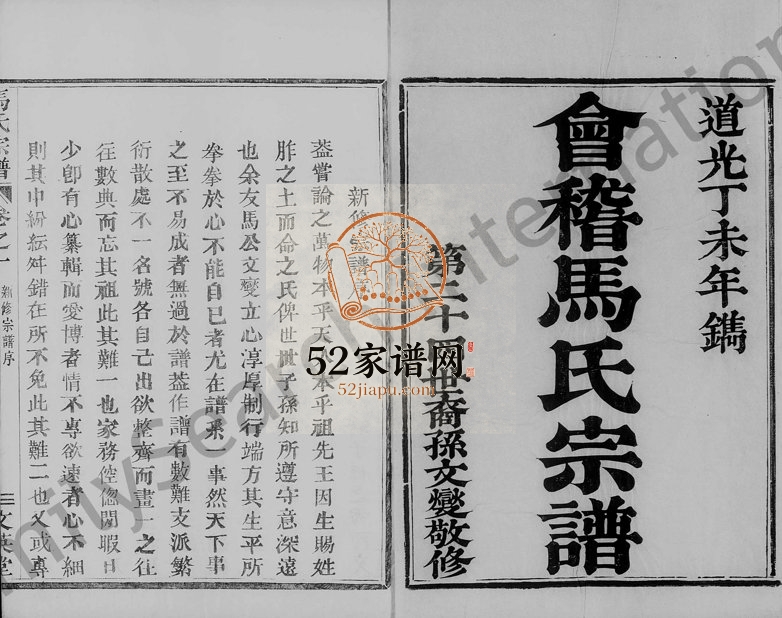 道光丁未年鐫
會稽馬氏宗譜
第二十四世裔孫文變敬修
新修宗譜序
葢嘗論之萬物本乎天人本乎祖先王因生賜姓
胙之土而命之氏俾世世子孫知所遵守意深遠
也余友馬公文變立心淳厚制行端方其生平所
拳拳於心不能自已者尤在譜系一事然天下事
之至不易成者無過於譜葢作譜有數難支派繁
衍散處不一名號各自己出欲整齊而畫一之往
往數典而忘其祖此其難一也家務倥偬閒暇日
少卽有心纂輯而愛博者情不專欲遠者心不細
則其中紛紜舛錯在所不免此其難二也又或專
馬氏宗譜
卷之一
新修宗譜序
二
文英堂
52家谱网
52jiapu.com
FamilySearch International